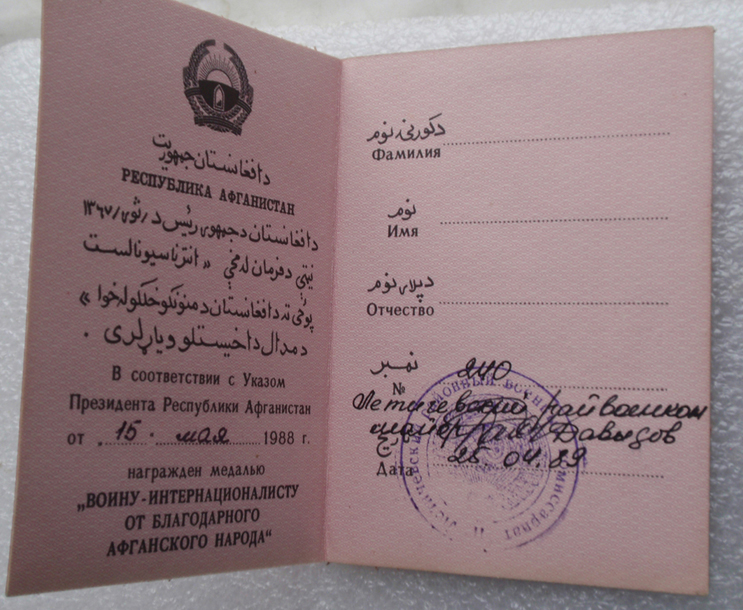 دافغانستان جمهوریت
РЕСПУБЛИКА АФГАНИСТАН
دافغانستان دجمهوری رئیس د / ثور / ۱۳۶۷
نیټې دفرمان له مخې « انترناسیونالست
پوځی ته دافغانستان دمنونکو خلکو له خوا »
دمدال داخیستلو ویاړ لری .
В соответствии с Указом
Президента Республики Афганистан
от „15“ мая 1988 г.
награжден медалью
„ВОИНУ-ИНТЕРНАЦИОНАЛИСТУ
ОТ БЛАГОДАРНОГО
АФГАНСКОГО НАРОДА“
دکورنۍ نوم
Фамилия
نوم
Имя
دپلار نوم
Отчество
نمبر
№ 240
Летичевский райвоенком
майор Давыдов
Дата 25.04.89